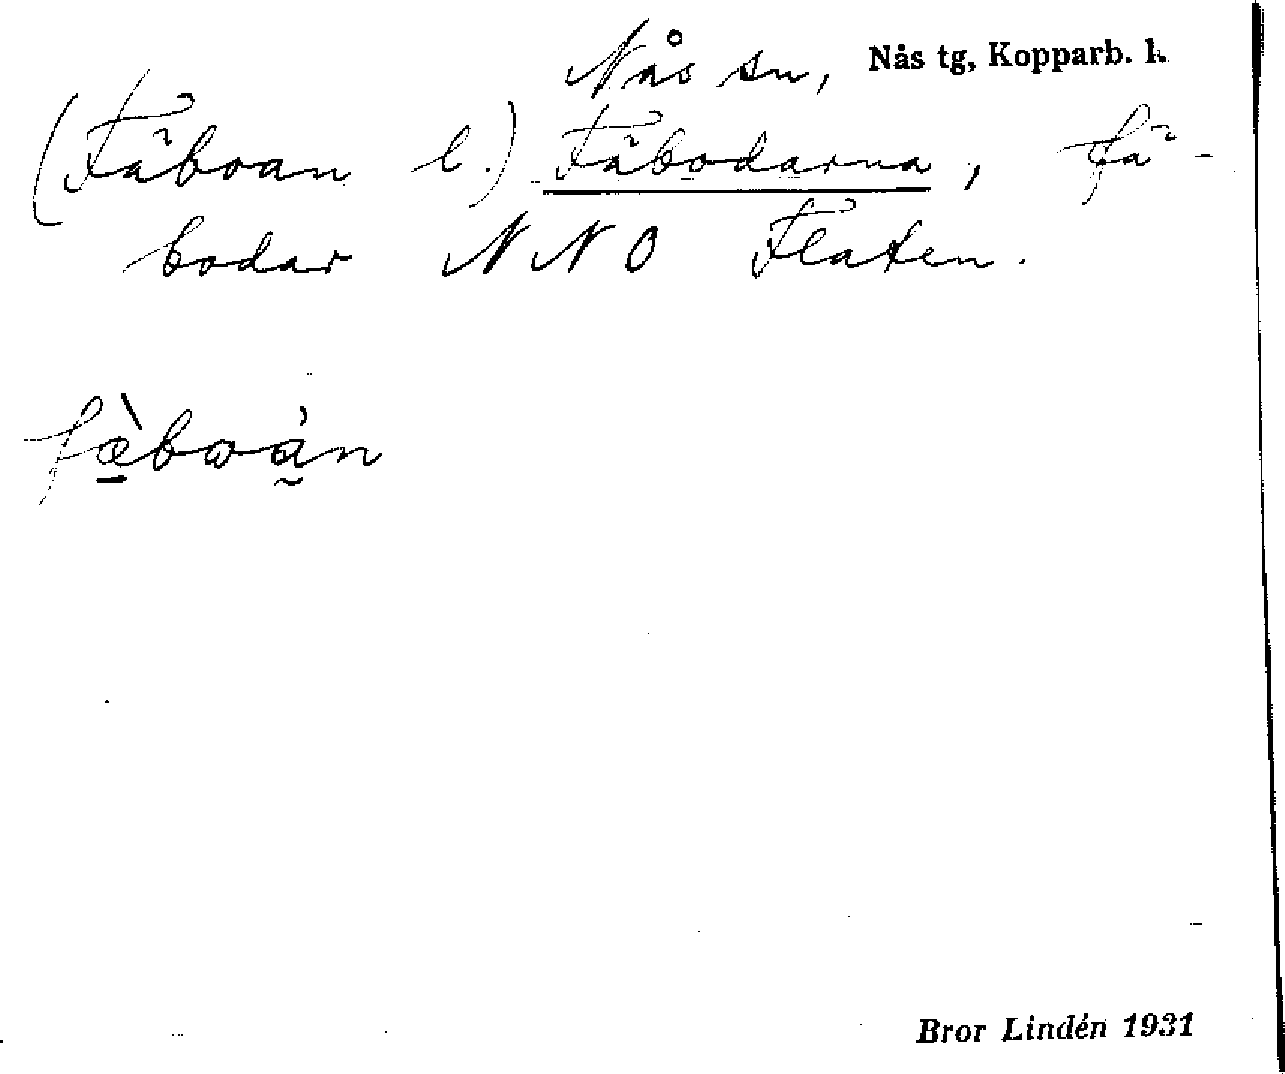 Nås sn, Nås tg, Kopparb. l.
(Fäboan l.) Fäbodarna, fä-
bodar NNO Flaten.
fæ̠̀bωà̰n
Bror Lindén 1931